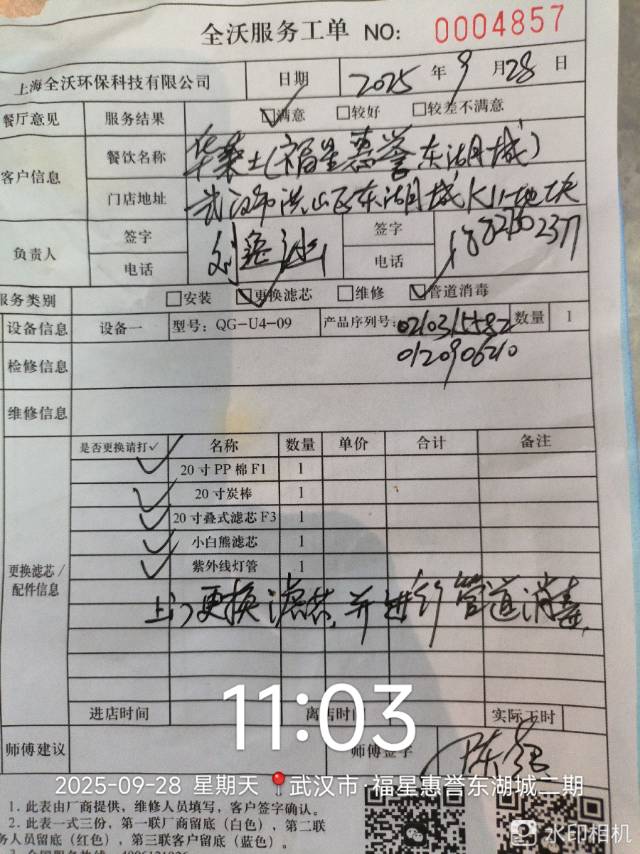 全沃服务工单 NO: 0004857
上海全沃环保科技有限公司 日期 2025 年 9 月 28 日
餐厅意见 服务结果 ☑满意 □较好 □较差不满意
客户信息 餐饮名称 华莱士(福星惠誉东湖城)
门店地址 武汉市洪山区东湖城K11地块
负责人 签字 签字
电话 电话
服务类别 □安装 ☑更换滤芯 □维修 ☑管道消毒
设备信息 设备一 型号: QG-U4-09 产品序列号: 数量 1
0120906210
检修信息
维修信息
更换滤芯/配件信息 是否更换请打✓ 名称 数量 单价 合计 备注
✓ 20寸PP棉F1 1
✓ 20寸炭棒 1
✓ 20寸叠式滤芯F3 1
✓ 小白熊滤芯 1
✓ 紫外线灯管 1
上门更换滤芯,并进行管道消毒.
进店时间 离店时间 实际工时
11:03
师傅建议 师傅签字
2025-09-28 星期天 武汉市·福星惠誉东湖城二期
1. 此表由厂商提供，维修人员填写，客户签字确认。
2. 此表一式三份，第一联厂商留底（白色），第二联
务人员留底（红色），第三联客户留底（蓝色）。
水印相机